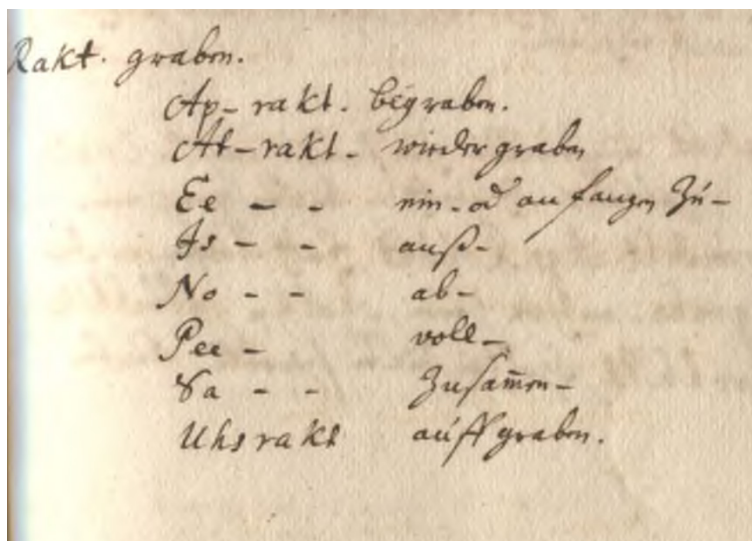 Rakt. graben.
Ap-rakt. begraben.
At-rakt- wieder graben
Ee - - ein- od anfangen zu-
Is - - auß-
No - - ab-
Pee - voll-
Sa - - zusam̄en-
Uhsrakt auffgraben.